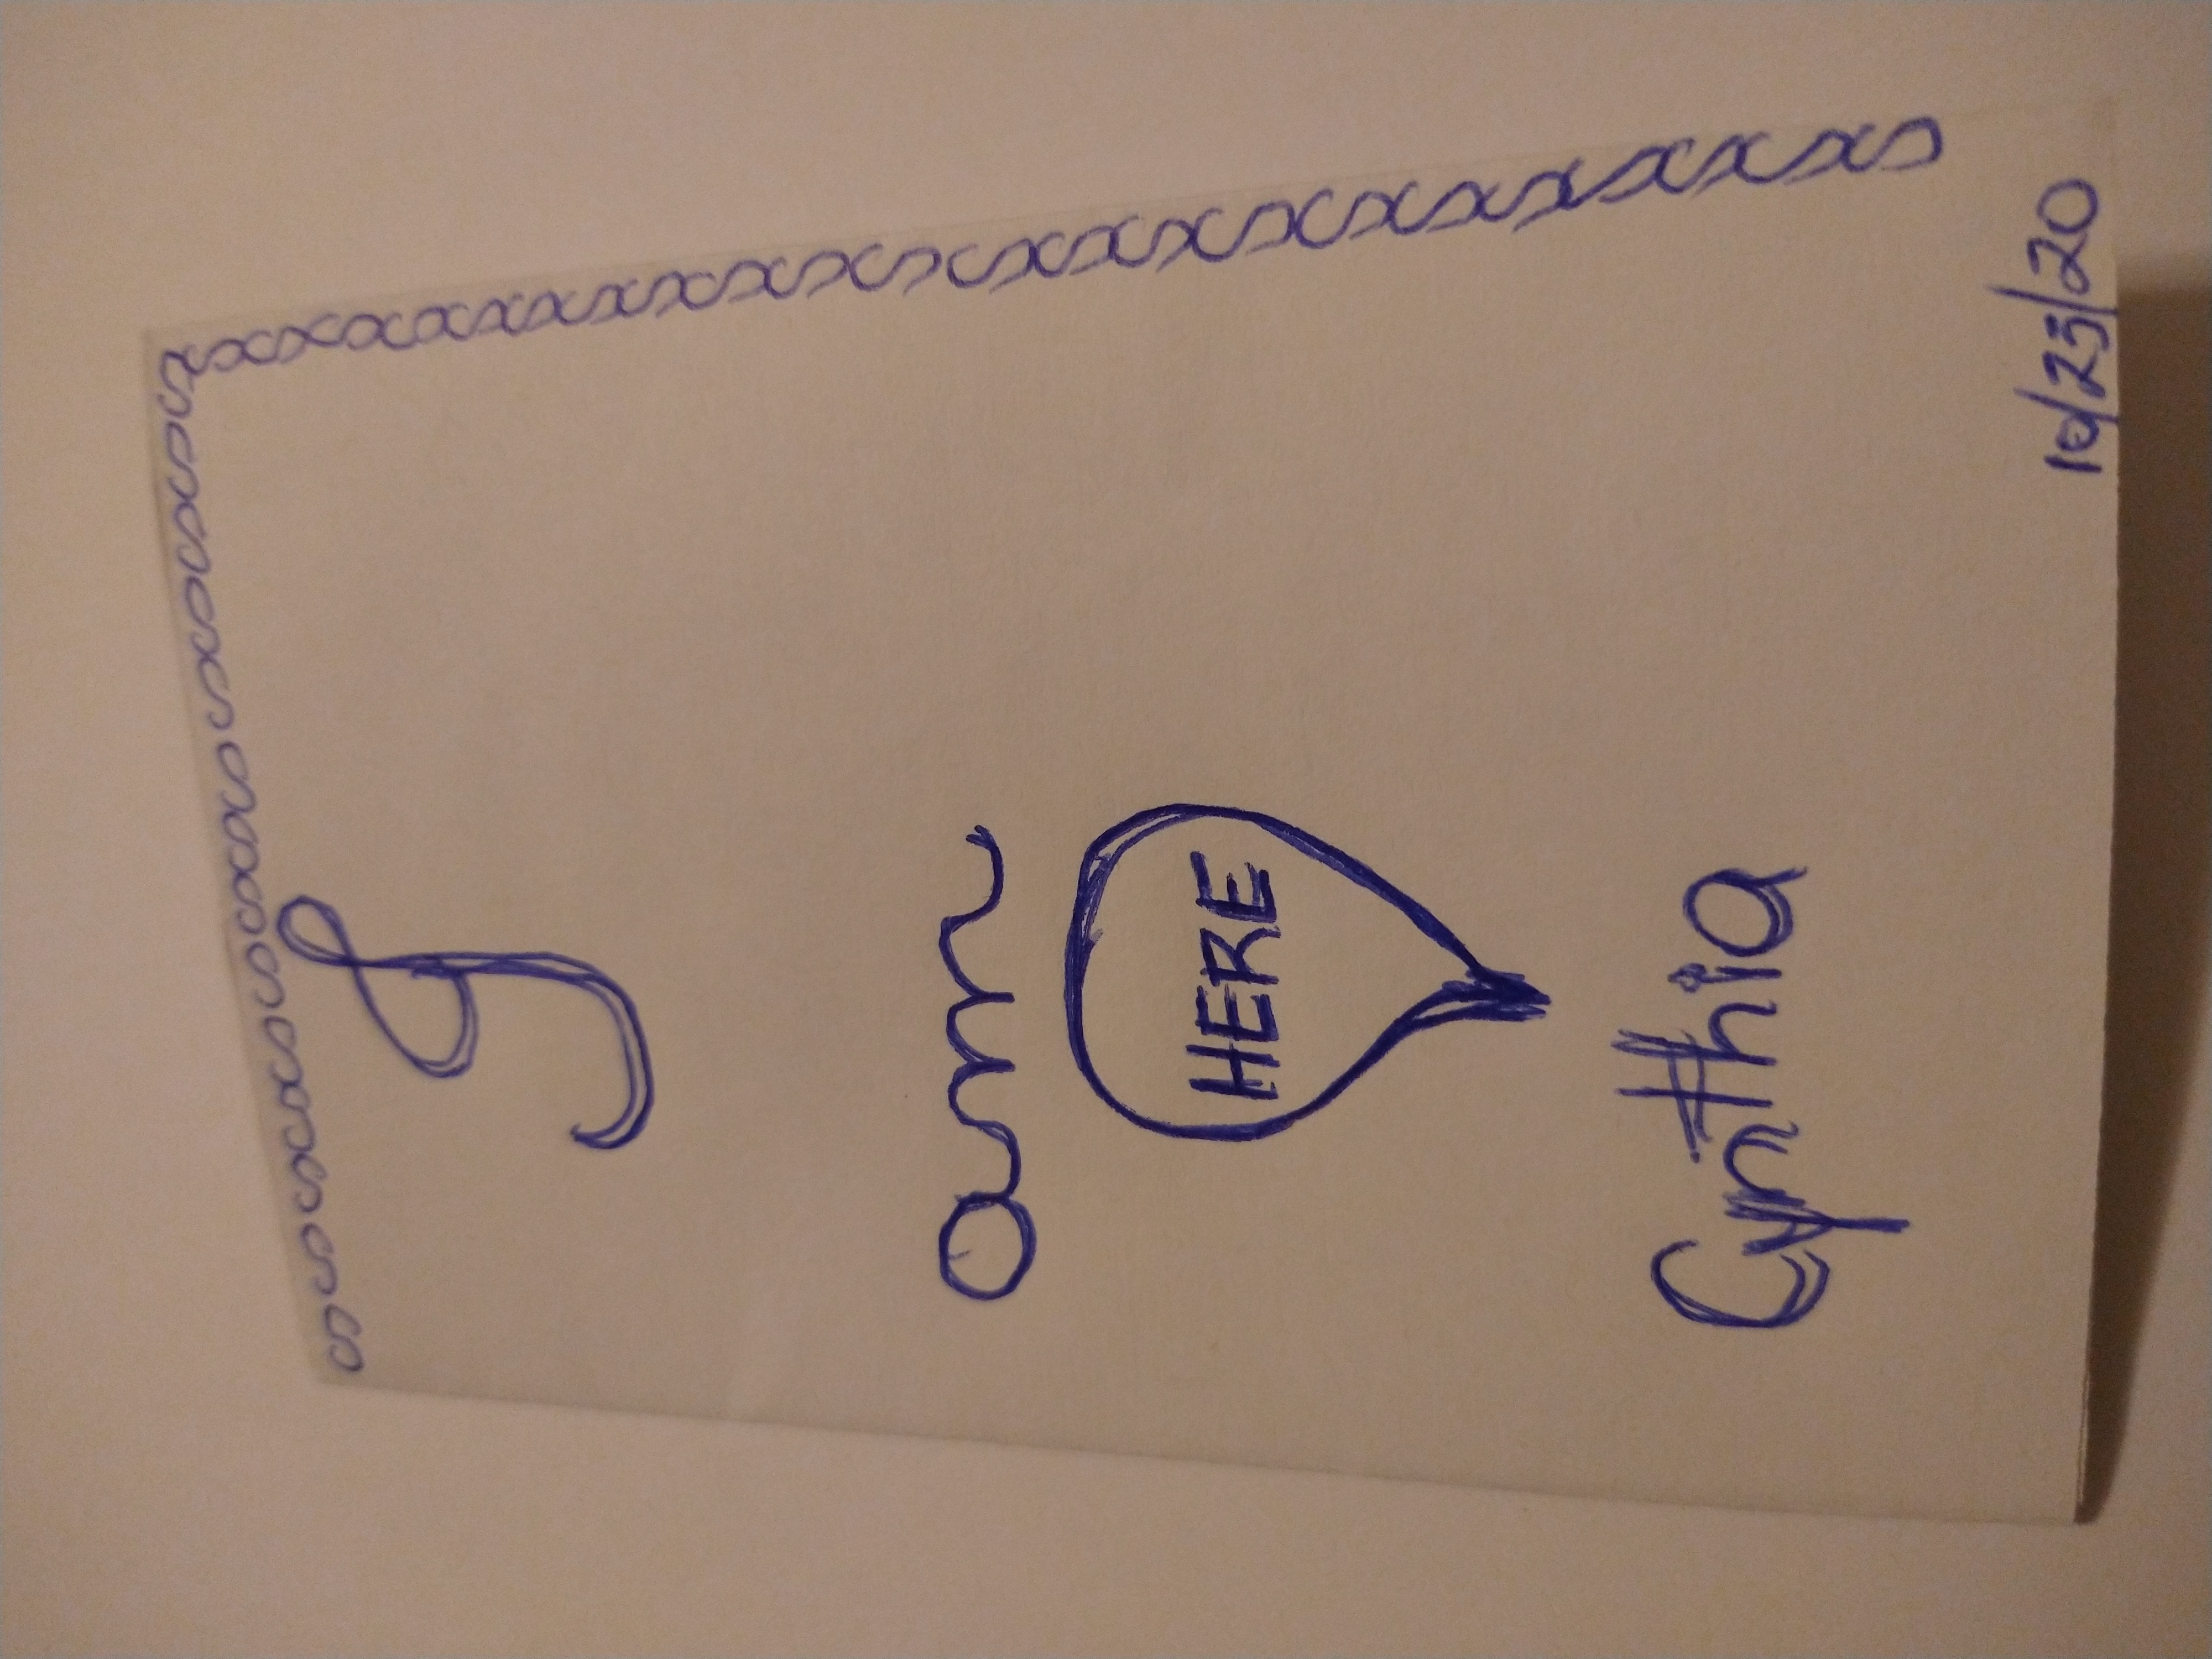 I
am
HERE
Cynthia
10/25/20